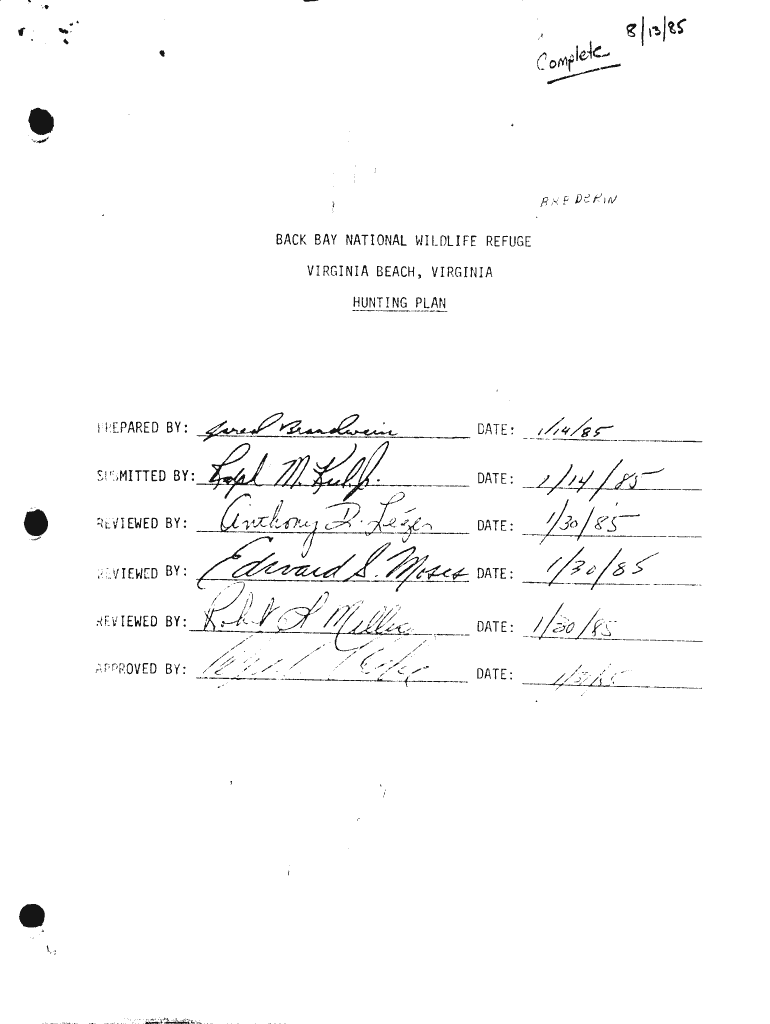 8/13/85
Complete
BACK BAY NATIONAL WILDLIFE REFUGE
VIRGINIA BEACH, VIRGINIA
HUNTING PLAN
PREPARED BY: Jared Brandwein DATE: 1/14/85
SUBMITTED BY: Ralph M. DATE: 1/14/85
REVIEWED BY: Anthony D. Léger DATE: 1/30/85
REVIEWED BY: Edward S. Moses DATE: 1/30/85
REVIEWED BY: Miller DATE: 1/30/85
APPROVED BY: DATE: